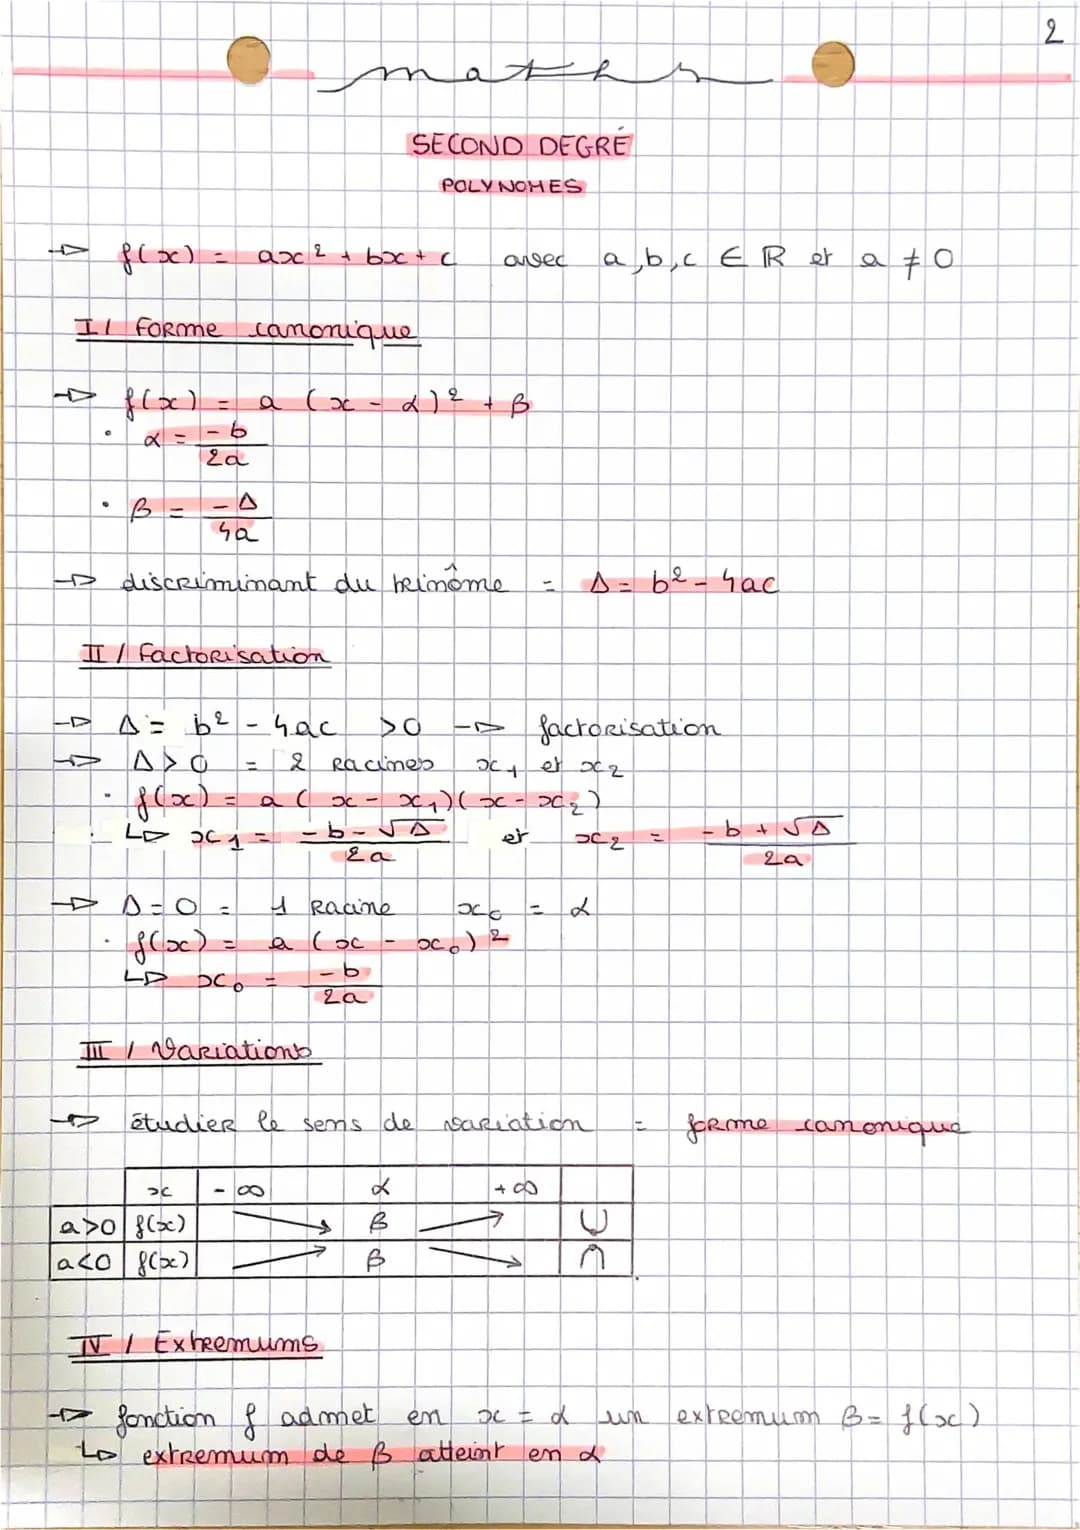 2
maths
SECOND DEGRÉ
POLYNOMES
→ f(x) = ax² + bx + c avec a,b,c ∈ ℝ et a ≠ 0
I / Forme canonique
→ f(x) = a (x - α)² + β
• α = -b/2a
• β = -Δ/4a
→ discriminant du trinôme = Δ = b² - 4ac
II / Factorisation
→ Δ = b² - 4ac > 0 → factorisation
→ Δ > 0 = 2 Racines x₁ et x₂
• f(x) = a (x - x₁)(x - x₂)
↳ x₁ = -b - √Δ / 2a et x₂ = -b + √Δ / 2a
→ Δ = 0 = 1 Racine x₀ = α
• f(x) = a (x - x₀)²
↳ x₀ = -b/2a
III / Variations
→ étudier le sens de variation = forme canonique
x -∞ α +∞
a>0 f(x) ↘ β ↗ ∪
a<0 f(x) ↗ β ↘ ∩
IV / Extremums
→ fonction f admet en x = α un extremum β = f(x)
↳ extremum de β atteint en α